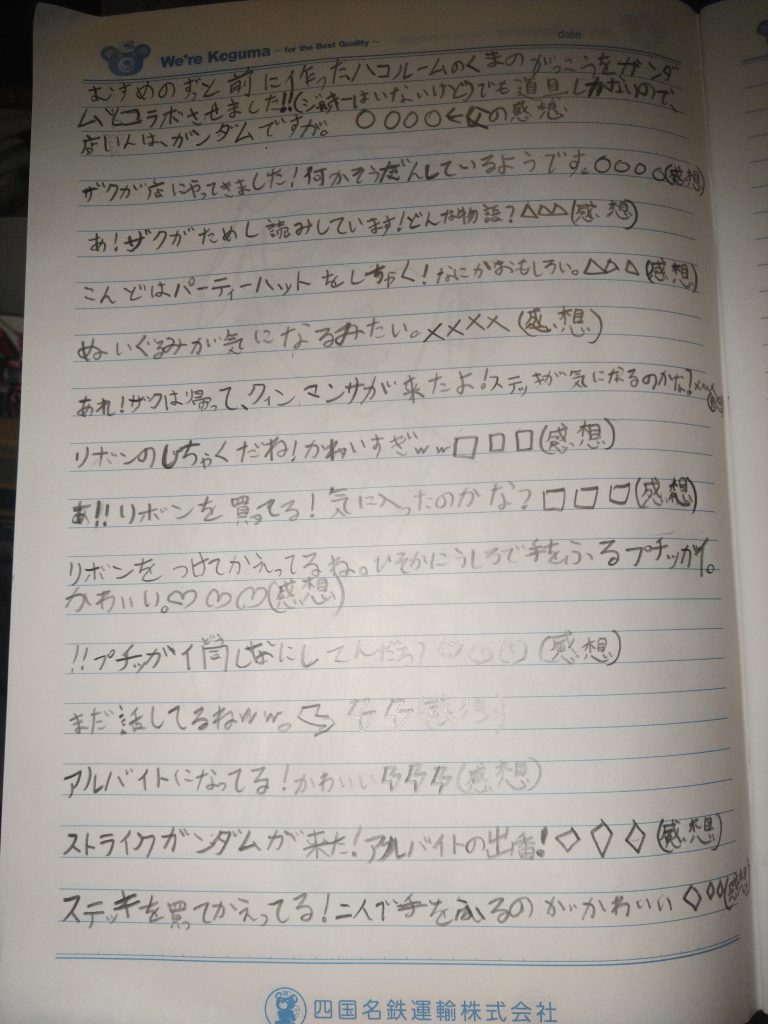 We're Koguma ~ for the Best Quality ~ date
むすめのずっと前に作ったハコルームのくまのがっこうをガンダ
ムとコラボさせました!!(ジャッキーはいないけど)でも道具しかないので、
店いんは、ガンダムですが。 〇〇〇〇←の感想
ザクが店にやってきました!何かそうだんしているようです。〇〇〇〇(感想)
あ!ザクがためし読みしています!どんな物語?△△△(感想)
こんどはパーティーハットをしちゃく!なにかおもしろい。△△△(感想)
ぬいぐるみが気になるみたい。××××(感想)
あれ!ザクは帰って、クィンマンサが来たよ!ステッキが気になるのかな?×××
リボンのしちゃくだね!かわいすぎww□□□(感想)
あ!!リボンを買ってる!気に入ったのかな?□□□(感想)
リボンをつけてかえってるね。ひそかにうしろで手をふるプチッガイ。
かわいい。♡♡♡(感想)
!!プチッガイ同しなにしてんだろ?♡♡♡(感想)
まだ話してるねww。(感想)
アルバイトになってる!かわいい(感想)
ストライクガンダムが来た!アルバイトの出番!◇◇◇(感想)
ステッキを買ってかえってる!二人で手をふるのがかわいい◇◇◇(感想)
四国名鉄運輸株式会社